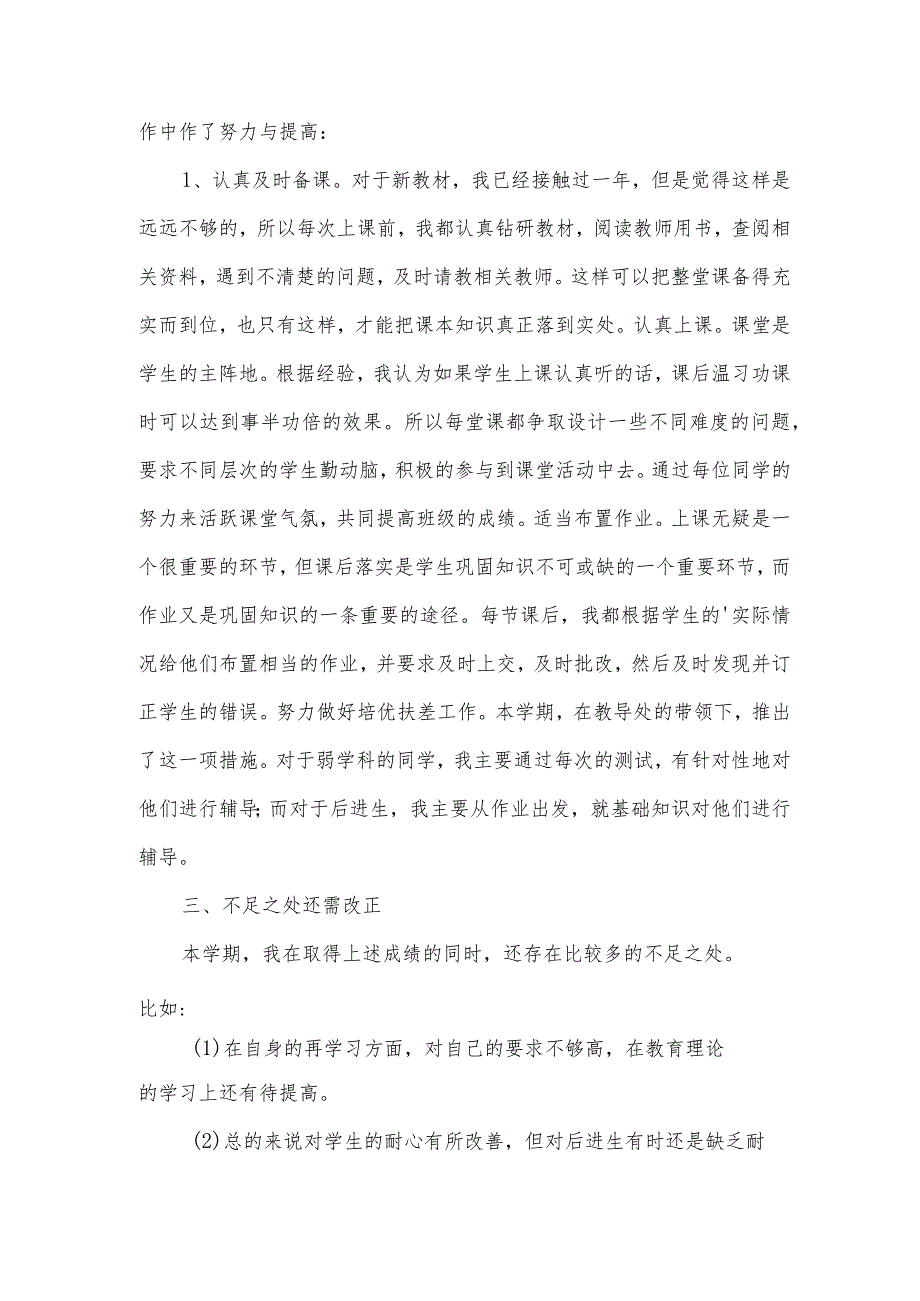 作中作了努力与提高：
1、认真及时备课。对于新教材，我已经接触过一年，但是觉得这样是
远远不够的，所以每次上课前，我都认真钻研教材，阅读教师用书，查阅相
关资料，遇到不清楚的问题，及时请教相关教师。这样可以把整堂课备得充
实而到位，也只有这样，才能把课本知识真正落到实处。认真上课。课堂是
学生的主阵地。根据经验，我认为如果学生上课认真听的话，课后温习功课
时可以达到事半功倍的效果。所以每堂课都争取设计一些不同难度的问题，
要求不同层次的学生勤动脑，积极的参与到课堂活动中去。通过每位同学的
努力来活跃课堂气氛，共同提高班级的成绩。适当布置作业。上课无疑是一
个很重要的环节，但课后落实是学生巩固知识不可或缺的一个重要环节，而
作业又是巩固知识的一条重要的途径。每节课后，我都根据学生的'实际情
况给他们布置相当的作业，并要求及时上交，及时批改，然后及时发现并订
正学生的错误。努力做好培优扶差工作。本学期，在教导处的带领下，推出
了这一项措施。对于弱学科的同学，我主要通过每次的测试，有针对性地对
他们进行辅导；而对于后进生，我主要从作业出发，就基础知识对他们进行
辅导。
三、不足之处还需改正
本学期，我在取得上述成绩的同时，还存在比较多的不足之处。
比如：
(1)在自身的再学习方面，对自己的要求不够高，在教育理论
的学习上还有待提高。
(2)总的来说对学生的耐心有所改善，但对后进生有时还是缺乏耐